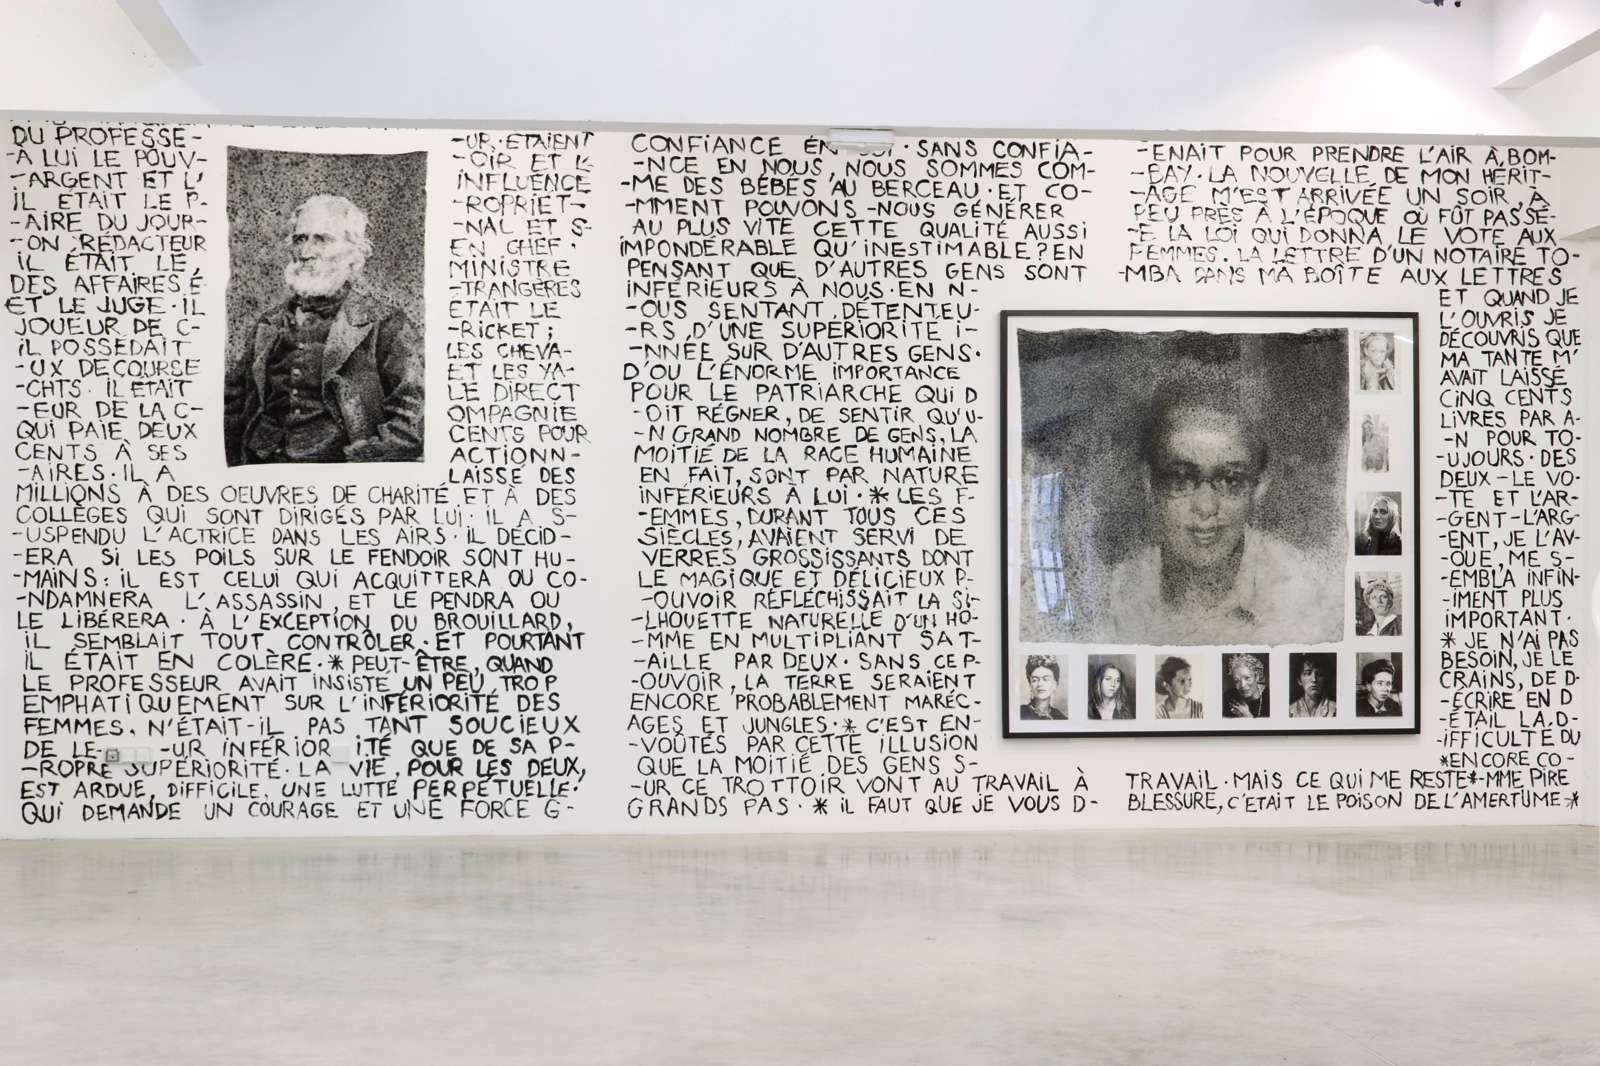 DU PROFESSE- -UR · ÉTAIENT
-À LUI LE POUV- -OIR ET L'
-ARGENT ET L' INFLUENCE
IL ETAIT LE P- -ROPRIET-
-AIRE DU JOUR- -NAL ET S-
-ON RÉDACTEUR EN CHEF ·
IL ÉTAIT LE MINISTRE
DES AFFAIRES É -TRANGÈRES
ET LE JUGE · IL ÉTAIT LE
JOUEUR DE C- -RICKET ;
IL POSSÉDAIT LES CHEVA-
-UX DE COURSE ET LES YA-
-CHTS · IL ÉTAIT LE DIRECT
-EUR DE LA C- OMPAGNIE
QUI PAIE DEUX CENTS POUR
CENTS À SES ACTIONN-
-AIRES · IL A LAISSÉ DES
MILLIONS À DES OEUVRES DE CHARITÉ ET À DES
COLLÈGES QUI SONT DIRIGÉS PAR LUI · IL A S-
-USPENDU L'ACTRICE DANS LES AIRS · IL DÉCID-
-ERA SI LES POILS SUR LE FENDOIR SONT HU-
-MAINS : IL EST CELUI QUI ACQUITTERA OU CO-
-NDAMNERA L'ASSASSIN, ET LE PENDRA OU
LE LIBÉRERA · À L'EXCEPTION DU BROUILLARD,
IL SEMBLAIT TOUT CONTRÔLER · ET POURTANT
IL ÉTAIT EN COLÈRE · * PEUT-ÊTRE, QUAND
LE PROFESSEUR AVAIT INSISTÉ UN PEU TROP
EMPHATIQUEMENT SUR L'INFÉRIORITÉ DES
FEMMES, N'ÉTAIT-IL PAS TANT SOUCIEUX
DE LE- -UR INFÉRIORITÉ QUE DE SA P-
-ROPRE SUPÉRIORITÉ · LA VIE, POUR LES DEUX,
EST ARDUE, DIFFICILE, UNE LUTTE PERPÉTUELLE ·
QUI DEMANDE UN COURAGE ET UNE FORCE G-
CONFIANCE EN · SANS CONFIA-
-NCE EN NOUS, NOUS SOMMES COM-
-ME DES BÉBÉS AU BERCEAU · ET CO-
-MMENT POUVONS-NOUS GÉNÉRER
AU PLUS VITE CETTE QUALITÉ AUSSI
IMPONDÉRABLE QU'INESTIMABLE ? EN
PENSANT QUE D'AUTRES GENS SONT
INFÉRIEURS À NOUS · EN N-
-OUS SENTANT DÉTENTEU-
-RS, D'UNE SUPÉRIORITÉ I-
-NNÉE SUR D'AUTRES GENS ·
D'OU L'ÉNORME IMPORTANCE
POUR LE PATRIARCHE QUI D
-OIT RÉGNER, DE SENTIR QU'U-
-N GRAND NOMBRE DE GENS, LA
MOITIÉ DE LA RACE HUMAINE
EN FAIT, SONT PAR NATURE
INFÉRIEURS À LUI · * LES F-
-EMMES, DURANT TOUS CES
SIÈCLES, AVAIENT SERVI DE
VERRES GROSSISSANTS DONT
LE MAGIQUE ET DÉLICIEUX P-
-OUVOIR RÉFLÉCHISSAIT LA SI-
-LHOUETTE NATURELLE D'UN HO-
-MME EN MULTIPLIANT SA T-
-AILLE PAR DEUX · SANS CE P-
-OUVOIR, LA TERRE SERAIENT
ENCORE PROBABLEMENT MARÉC-
AGES ET JUNGLES · * C'EST EN-
-VOÛTÉS PAR CETTE ILLUSION
QUE LA MOITIÉ DES GENS S-
-UR CE TROTTOIR VONT AU TRAVAIL À
GRANDS PAS · * IL FAUT QUE JE VOUS D-
-ENAIT POUR PRENDRE L'AIR À BOM-
-BAY · LA NOUVELLE DE MON HÉRIT-
-AGE M'EST ARRIVÉE UN SOIR, À
PEU PRÈS À L'ÉPOQUE OÙ FÛT PASSÉ-
-E LA LOI QUI DONNA LE VOTE AUX
FEMMES · LA LETTRE D'UN NOTAIRE TO-
-MBA DANS MA BOÎTE AUX LETTRES
ET QUAND JE
L'OUVRIS JE
DÉCOUVRIS QUE
MA TANTE M'
AVAIT LAISSÉ
CINQ CENTS
LIVRES PAR A-
-N POUR TO-
-UJOURS · DES
DEUX - LE VO-
-TE ET L'AR-
-GENT - L'ARG-
-ENT, JE L'AV-
-OUE, ME S-
-EMBLA INFIN-
-IMENT PLUS
IMPORTANT ·
* JE N'AI PAS
BESOIN, JE LE
CRAINS, DE D-
-ÉCRIRE EN D
-ÉTAIL LA D-
-IFFICULTÉ DU
*ENCORE CO-
TRAVAIL · MAIS CE QUI ME RESTE*-MME PIRE
BLESSURE, C'ÉTAIT LE POISON DE L'AMERTUME *